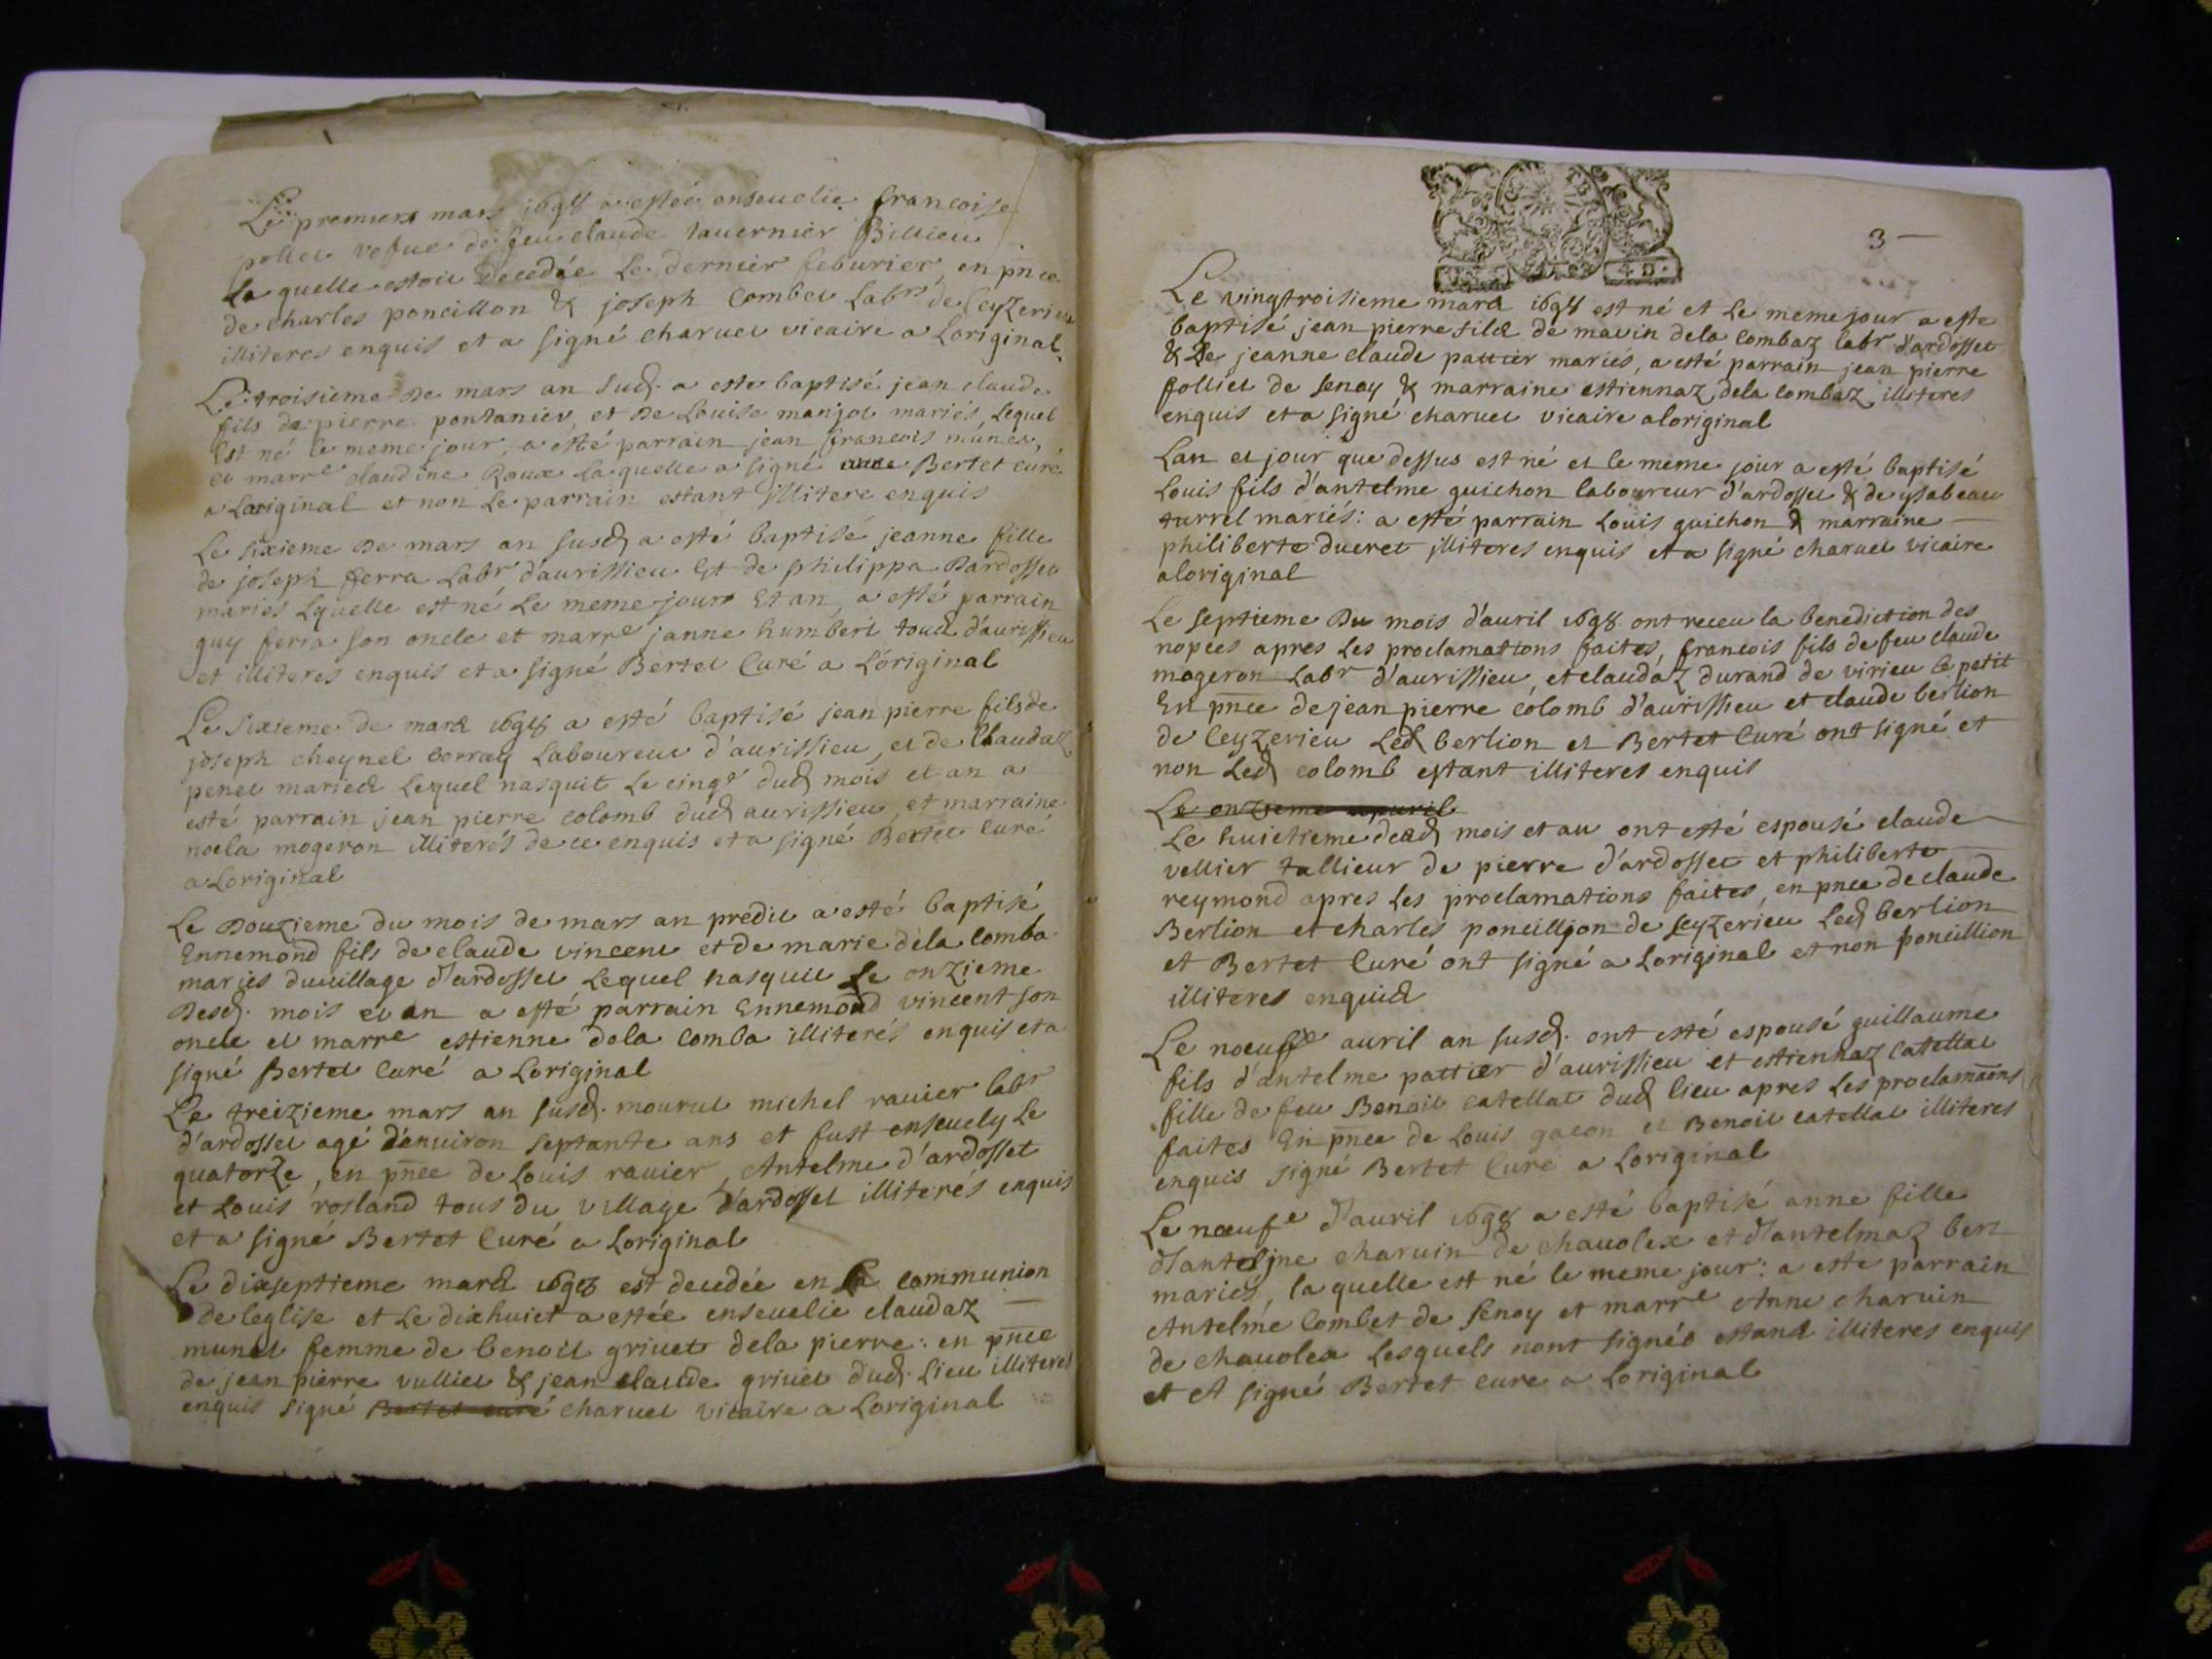 Le premiers mars 1698 a estée enseuelie francoise
pollet vefue de feu claude tauernier Billieu
La quelle estoit Decedée Le dernier feburier, en pnce
de charles poncillon & joseph Combet Labr de Ceyzerieu
illiteres enquis et a signé charuet vicaire a Loriginal.
Le troisieme De mars an susd. a este baptisé jean claude
fils de pierre pontanier, et De Louise manjot mariés, Lequel
Est né le meme jour, a esté parrain jean francois munet,
et marre claudine Roux La quelle a signé Bertet curé
a Loriginal et non Le parrain estant illitere enquis
Le sixieme De mars an susd a esté baptisé jeanne fille
de joseph ferra Labr d'aurissieu Et de philippa Dardosset
mariés Lquelle est né Le meme jour Et an, a esté parrain
guy ferra son oncle et marre janne humbert tous d'aurissieu
et illiteres enquis et a signé Bertet Curé a Loriginal
Le sixieme de mars 1698 a esté baptisé jean pierre fils de
joseph cheynel Laboureur d'aurissieu, et de Claudaz
penet mariés Lequel nasquit Le cinqe dud mois et an a
esté parrain jean pierre colomb dud aurissieu, et marraine
noela mogeron illiterés de ce enquis et a signé Bertet Curé
a Loriginal
Le Douzieme du mois de mars an predit a esté baptisé
Ennemond fils de claude vincent et de marie dela Comba
mariés du uillage d'ardosset Lequel nasquit Le onzieme
Desd. mois et an a esté parrain Ennemond vincent son
oncle et marre estienne dela Comba illiterés enquis et a
signé Bertet Curé a Loriginal
Le treizieme mars an susd. mourut michel rauier labr
d'ardosset agé d'enuiron septante ans et fust enseuely Le
quatorze, en pnce de Louis rauier, Antelme d'ardosset
et Louis rosland tous du village d'ardosset illiterés enquis
et a signé Bertet Curé a Loriginal
Le dixseptieme mars 1698 est decedée en La communion
de leglise et Le dixhuict a estée enseuelie claudaz
munet femme de benoit griuet dela pierre: en pnce
de jean pierre vulliet & jean claude griuet dud. Lieu illiteres
enquis signé Bertet curé charuet vicaire a Loriginal
3
Le vingtroisieme mars 1698 est né et Le meme jour a este
baptisé jean pierre fils de mavin dela Combaz labr d'ardosset
& De jeanne claude pattier mariés, a esté parrain jean pierre
folliet de senoy & marraine estiennaz dela Combaz illiteres
enquis et a signé charuet vicaire a loriginal
Lan et jour que dessus est né et le meme jour a esté baptisé
Louis fils d'antelme guichon laboureur d'ardosset & de ysabeau
turrel mariés: a esté parrain Louis guichon & marraine
philiberte ducret illiteres enquis et a signé charuet vicaire
a loriginal
Le septieme Du mois d'auril 1698 ont receu la benediction des
nopces apres Les proclamations faites, francois fils de feu claude
mogeron Labr d'aurissieu, et claudaz durand de virieu le petit
En pnce de jean pierre colomb d'aurissieu et claude berlion
de Ceyzerieu Led berlion et Bertet Curé ont signé et
non Led colomb estant illiteres enquis
Le onzieme apuril
Le huictieme desd mois et an ont esté espousé claude
vellier tallieur de pierre d'ardosset et philiberte
reymond apres Les proclamations faites, en pnce de claude
Berlion et charles poncillion de Ceyzerieu Led berlion
et Bertet Curé ont signé a Loriginal et non poncillion
illiteres enquis
Le noeufe auril an susd. ont esté espousé guillaume
fils d'antelme pattier d'aurissieu et estiennaz Catellat
fille de feu Benoit catellat dud lieu apres Les proclamaons
faites En pnce de Louis gacon et Benoit catellat illiteres
enquis signé Bertet Curé a Loriginal
Le noeufe d'auril 1698 a esté baptisé anne fille
d'antelme charuin de chauolex et d'antelmaz bert
mariés, la quelle est né le meme jour: a este parrain
Antelme Combet de senoy et marre Anne charuin
de chauolex Lesquels nont signés estans illiteres enquis
et A signé Bertet cure a Loriginal